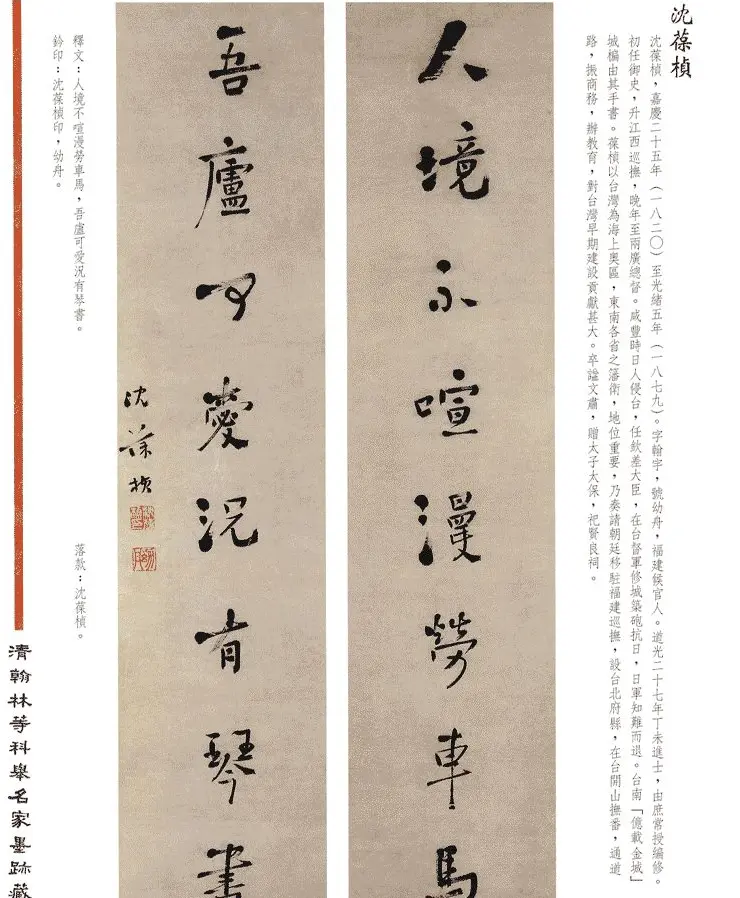 沈葆楨
沈葆楨，嘉慶二十五年（一八二〇）至光緒五年（一八七九）。字翰宇，號幼舟，福建侯官人。道光二十七年丁未進士，由庶常授編修。
初任御史，升江西巡撫，晚年至兩廣總督。咸豐時日人侵台，任欽差大臣，在台督軍修城築砲抗日，日軍知難而退。台南「億載金城」
城楄由其手書。葆楨以台灣為海上奧區，東南各省之藩衛，地位重要，乃奏請朝廷移駐福建巡撫，設台北府縣，在台開山撫番，通道
路，振商務，辦教育，對台灣早期建設貢獻甚大。卒謚文肅，贈太子太保，祀賢良祠。
人境不喧漫勞車馬
吾廬可愛況有琴書
沈葆楨
釋文：人境不喧漫勞車馬，吾盧可愛況有琴書。
落款：沈葆楨。
鈐印：沈葆楨印，幼舟。
清翰林等科舉名家墨跡藏